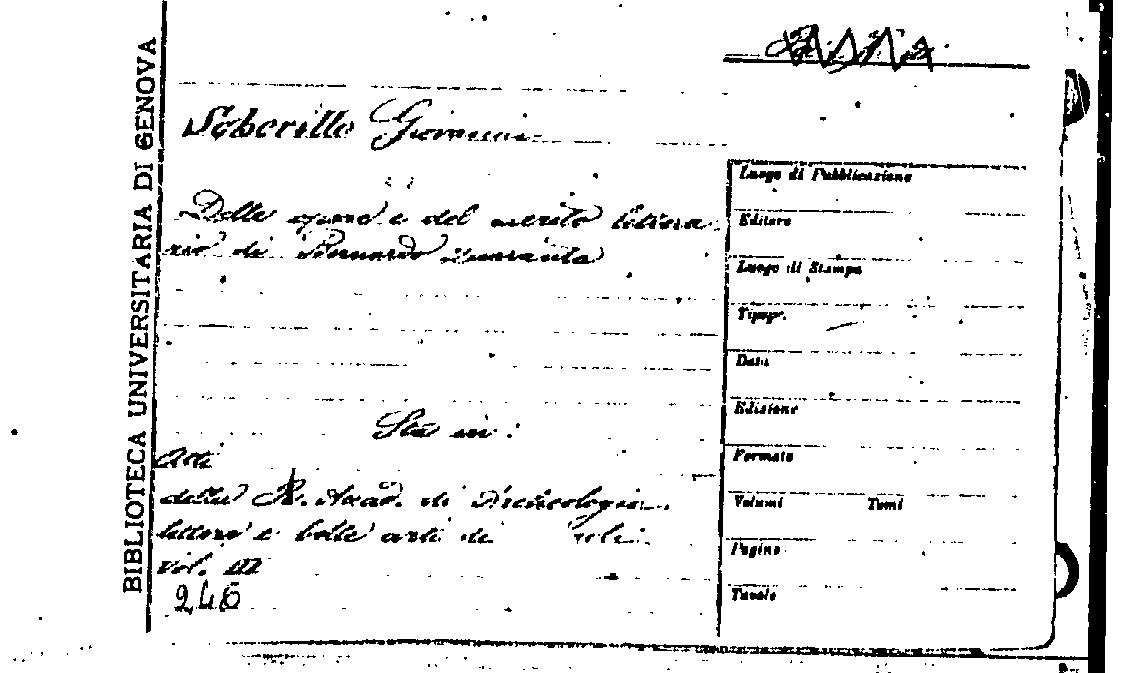 BIBLIOTECA UNIVERSITARIA DI GENOVA
Scherillo Giovanni
Delle opere e del merito lettera
rio di Bernardo Quaranta
Sta in:
Atti
della R. Accad. di Archeologia
lettere e belle arti di
vol. III
246
Luogo di Pubblicazione
Editore
Luogo di Stampa
Tipogr.
Data
Edizione
Formato
Volumi Tomi
Pagine
Tavole